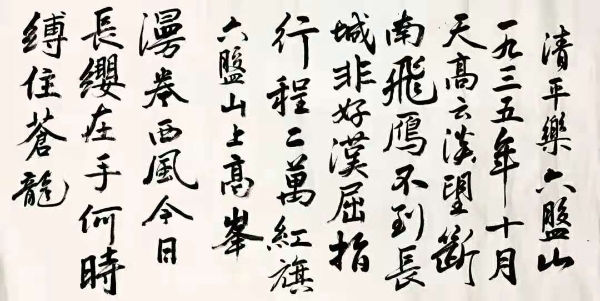 清平樂六盤山
一九三五年十月
天高云淡望斷
南飛雁不到長
城非好漢屈指
行程二萬紅旗
六盤山上高峯
漫卷西風今日
長纓在手何時
縛住蒼龍